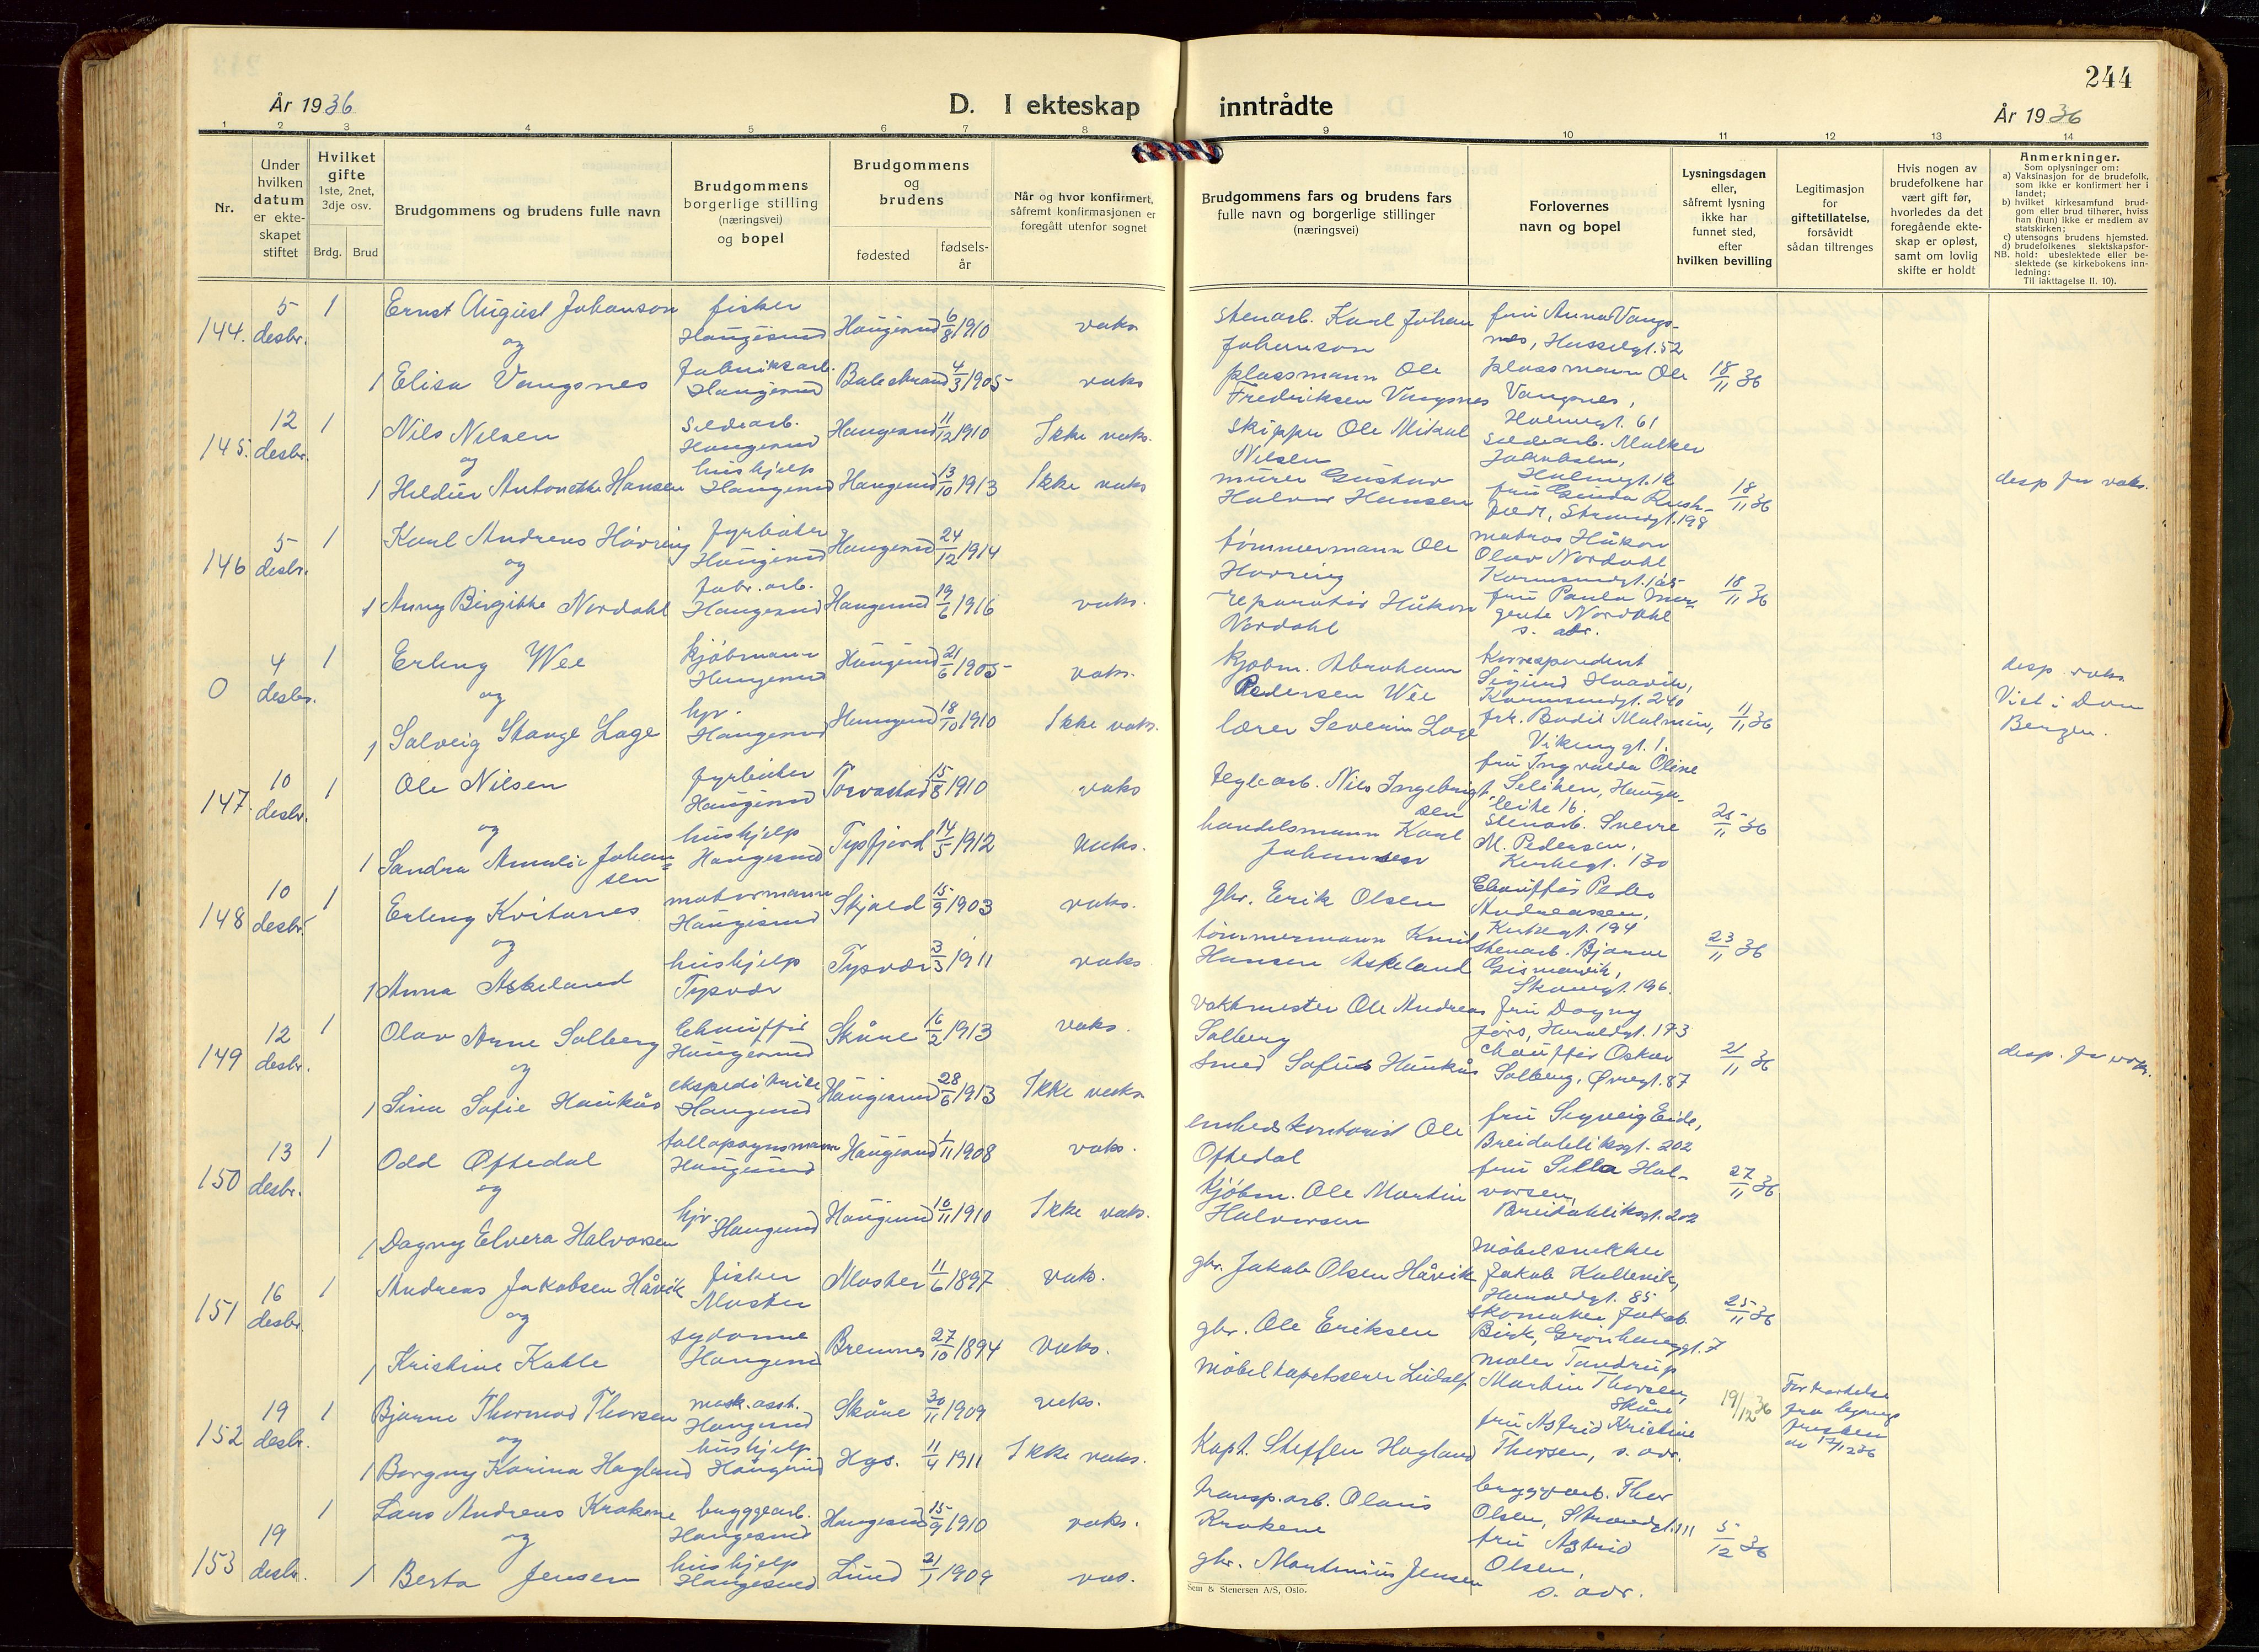 244
År 1936
D. I ekteskap inntrådte
År 1936
1 2 3 4 5 6 7 8 9 10 11 12 13 14
Nr.
Under hvilken datum er ekteskapet stiftet
Hvilket gifte 1ste, 2net, 3dje osv.
Brdg. Brud
Brudgommens og brudens fulle navn
Brudgommens borgerlige stilling (næringsvei) og bopel
Brudgommens og brudens
fødested
fødselsår
Når og hvor konfirmert, såfremt konfirmasjonen er foregått utenfor sognet
Brudgommens fars og brudens fars fulle navn og borgerlige stillinger (næringsvei)
Forlovernes navn og bopel
Lysningsdagen eller, såfremt lysning ikke har funnet sted, efter hvilken bevilling
Legitimasjon for giftetillatelse, forsåvidt sådan tiltrenges
Hvis nogen av brudefolkene har vært gift før, hvorledes da det foregående ekteskap er opløst, samt om lovlig skifte er holdt
Anmerkninger.
Som oplysninger om:
a) Vaksinasjon for de brudefolk, som ikke er konfirmert her i landet;
b) hvilket kirkesamfund brudgom eller brud tilhører, hviss han (hun) ikke er medlem av statskirken;
c) utensogns brudens hjemsted.
d) brudefolkenes slektskapsforhold: ubeslektede eller beslektede (se kirkebokens innledning:
NB. Til iakttagelse II. 10).
144. 5 desbr. 1 Ernst August Johanson fisker Haugesund Haugesund 6/8 1910 vaks stenarb. Karl Johan Johanson fru Anna Vangsnes, Hasselgt. 52
og
1 Elisa Vangsnes Fabriksarb. Haugesund Balestrand 4/3 1905 vaks plassmann Ole Fredriksen Vangsnes plassmann Ole Vangsnes, Holmegt. 61 18/11 36
145. 12 desbr. 1 Nils Nilsen Sildearb. Haugesund Haugesund 11/12 1910 Ikke vaks. skipper Ole Mikal Nilsen sildearb. Jakobsen,
og
1 Hildur Antonette Hansen hushjelp Haugesund Haugesund 13/10 1913 Ikke vaks murer Gustav Halvor Hansen Strandgt. 198 18/11 36 desp for vaks.
146 5 desbr. 1 Karl Andreas Hövring fyrbøter Haugesund Haugesund 24/12 1914 tømmermann Ole Hovring matros Håkon Olav Nordahl
og
1 Anny Birgitte Nordahl Fabr. arb. Haugesund Haugesund 19/6 1916 vaks. reparatör Håkon Nordahl Nordahl s. adr. 18/11 36
0 4 desbr. 1 Erling Wee kjöbmann Haugesund Haugesund 21/6 1905 vaks. kjöbm. Abraham Pedersen Wee Korrespondent Sigurd Haavik, Karmsundgt. 240 desp. vaks
og
1 Solveig Stange Lage hjv. Haugesund Haugesund 18/10 1910 Ikke vaks. lærer Severin Lage frk. Bodil Malmin, Vikinggt. 1. 11/11 36 Viet i Dom Bergen.
147. 10 desbr. 1 Ole Nilsen fyrbøter Haugesund Torvastad 15/8 1910 vaks teglearb. Nils Ingebrigtsen fru Ingvalda Oline
og
1 Sandra Amalie Johansen hushjelp Haugesund Tysfjord 14/5 1912 Vaks. handelsmann Karl Johansen stenarb. Sverre M. Pedersen, Kirkegt. 130 25/11 36
148 10 desbr. 1 Erling Kvitanes motormann Haugesund Skjold 15/9 1903 vaks. gbr. Erik Olsen Chauffør Peder Andreassen, Kirkegt. 194
og
1 Anna Askeland hushjelp Tysvær Tysvær 3/3 1911 vaks tømmermann Knud Hansen Askeland stenarb. Bjarne Gismarvik, Skaregt. 196. 23/11 36
149 12 desbr. 1 Olav Arne Solberg Chauffør Haugesund Skåne 16/2 1913 vaks. vaktmester Ole Andreas Solberg fru Dagny Haraldgt. 173
og
1 Sina Sofie Haukås ekspeditrise Haugesund Haugesund 28/6 1913 Ikke vaks smed Sofus Haukås chauffør Oskar Solberg, Øvregt. 87 21/11 36 desp. for vaks.
150 13 desbr. 1 Odd Oftedal Haugesund Haugesund 1/11 1908 vaks. kontorist Ole Oftedal fru Eide, Breidabliksgt. 202
og
1 Dagny Elvera Halvorsen hjv. Haugesund Haugesund 16/11 1910 Ikke vaks. kjöbm. Ole Martin Halvorsen fru Silla Halvorsen, Breidabliksgt. 202 27/11 36
151 16 desbr. 1 Andreas Jakobsen Håvik fisker Moster Moster 11/6 1897 vaks. gbr. Jakob Olsen Håvik möbelsnekker Jakob Kallevik, Haraldgt. 85
og
1 Kristine Kahle sydame Haugesund Bremnes 27/10 1894 Vaks. gbr. Ole Eriksen skomaker Jakob Birk, 7 25/11 36
152 19 desbr. 1 Bjarne Thormod Thorsen mask.asst. Haugesund Skåre 30/11 1909 vaks. möbeltapetserer Ludolf maler Tandrup Martin Thorsen, Skåre 19/12 36
og
1 Borgny Karina Hagland hushjelp Haugesund Hgs. 11/4 1911 Ikke vaks. Kapt. Steffen Hagland fru Astrid Kristine Thorsen, s. adr.
153 19 desbr. 1 Lars Andreas Krakene bryggearb. Haugesund Haugesund 15/9 1910 vaks. transp.arb. Olaus Krakene bryggearb. Thor Olsen, Strandgt. 111
og
1 Berta Jensen hushjelp Haugesund Lund 21/1 1909 vas. gbr. Martinius Jensen fru Astrid Olsen, s. adr. 5/12 36
Sem & Stenersen A/S, Oslo.